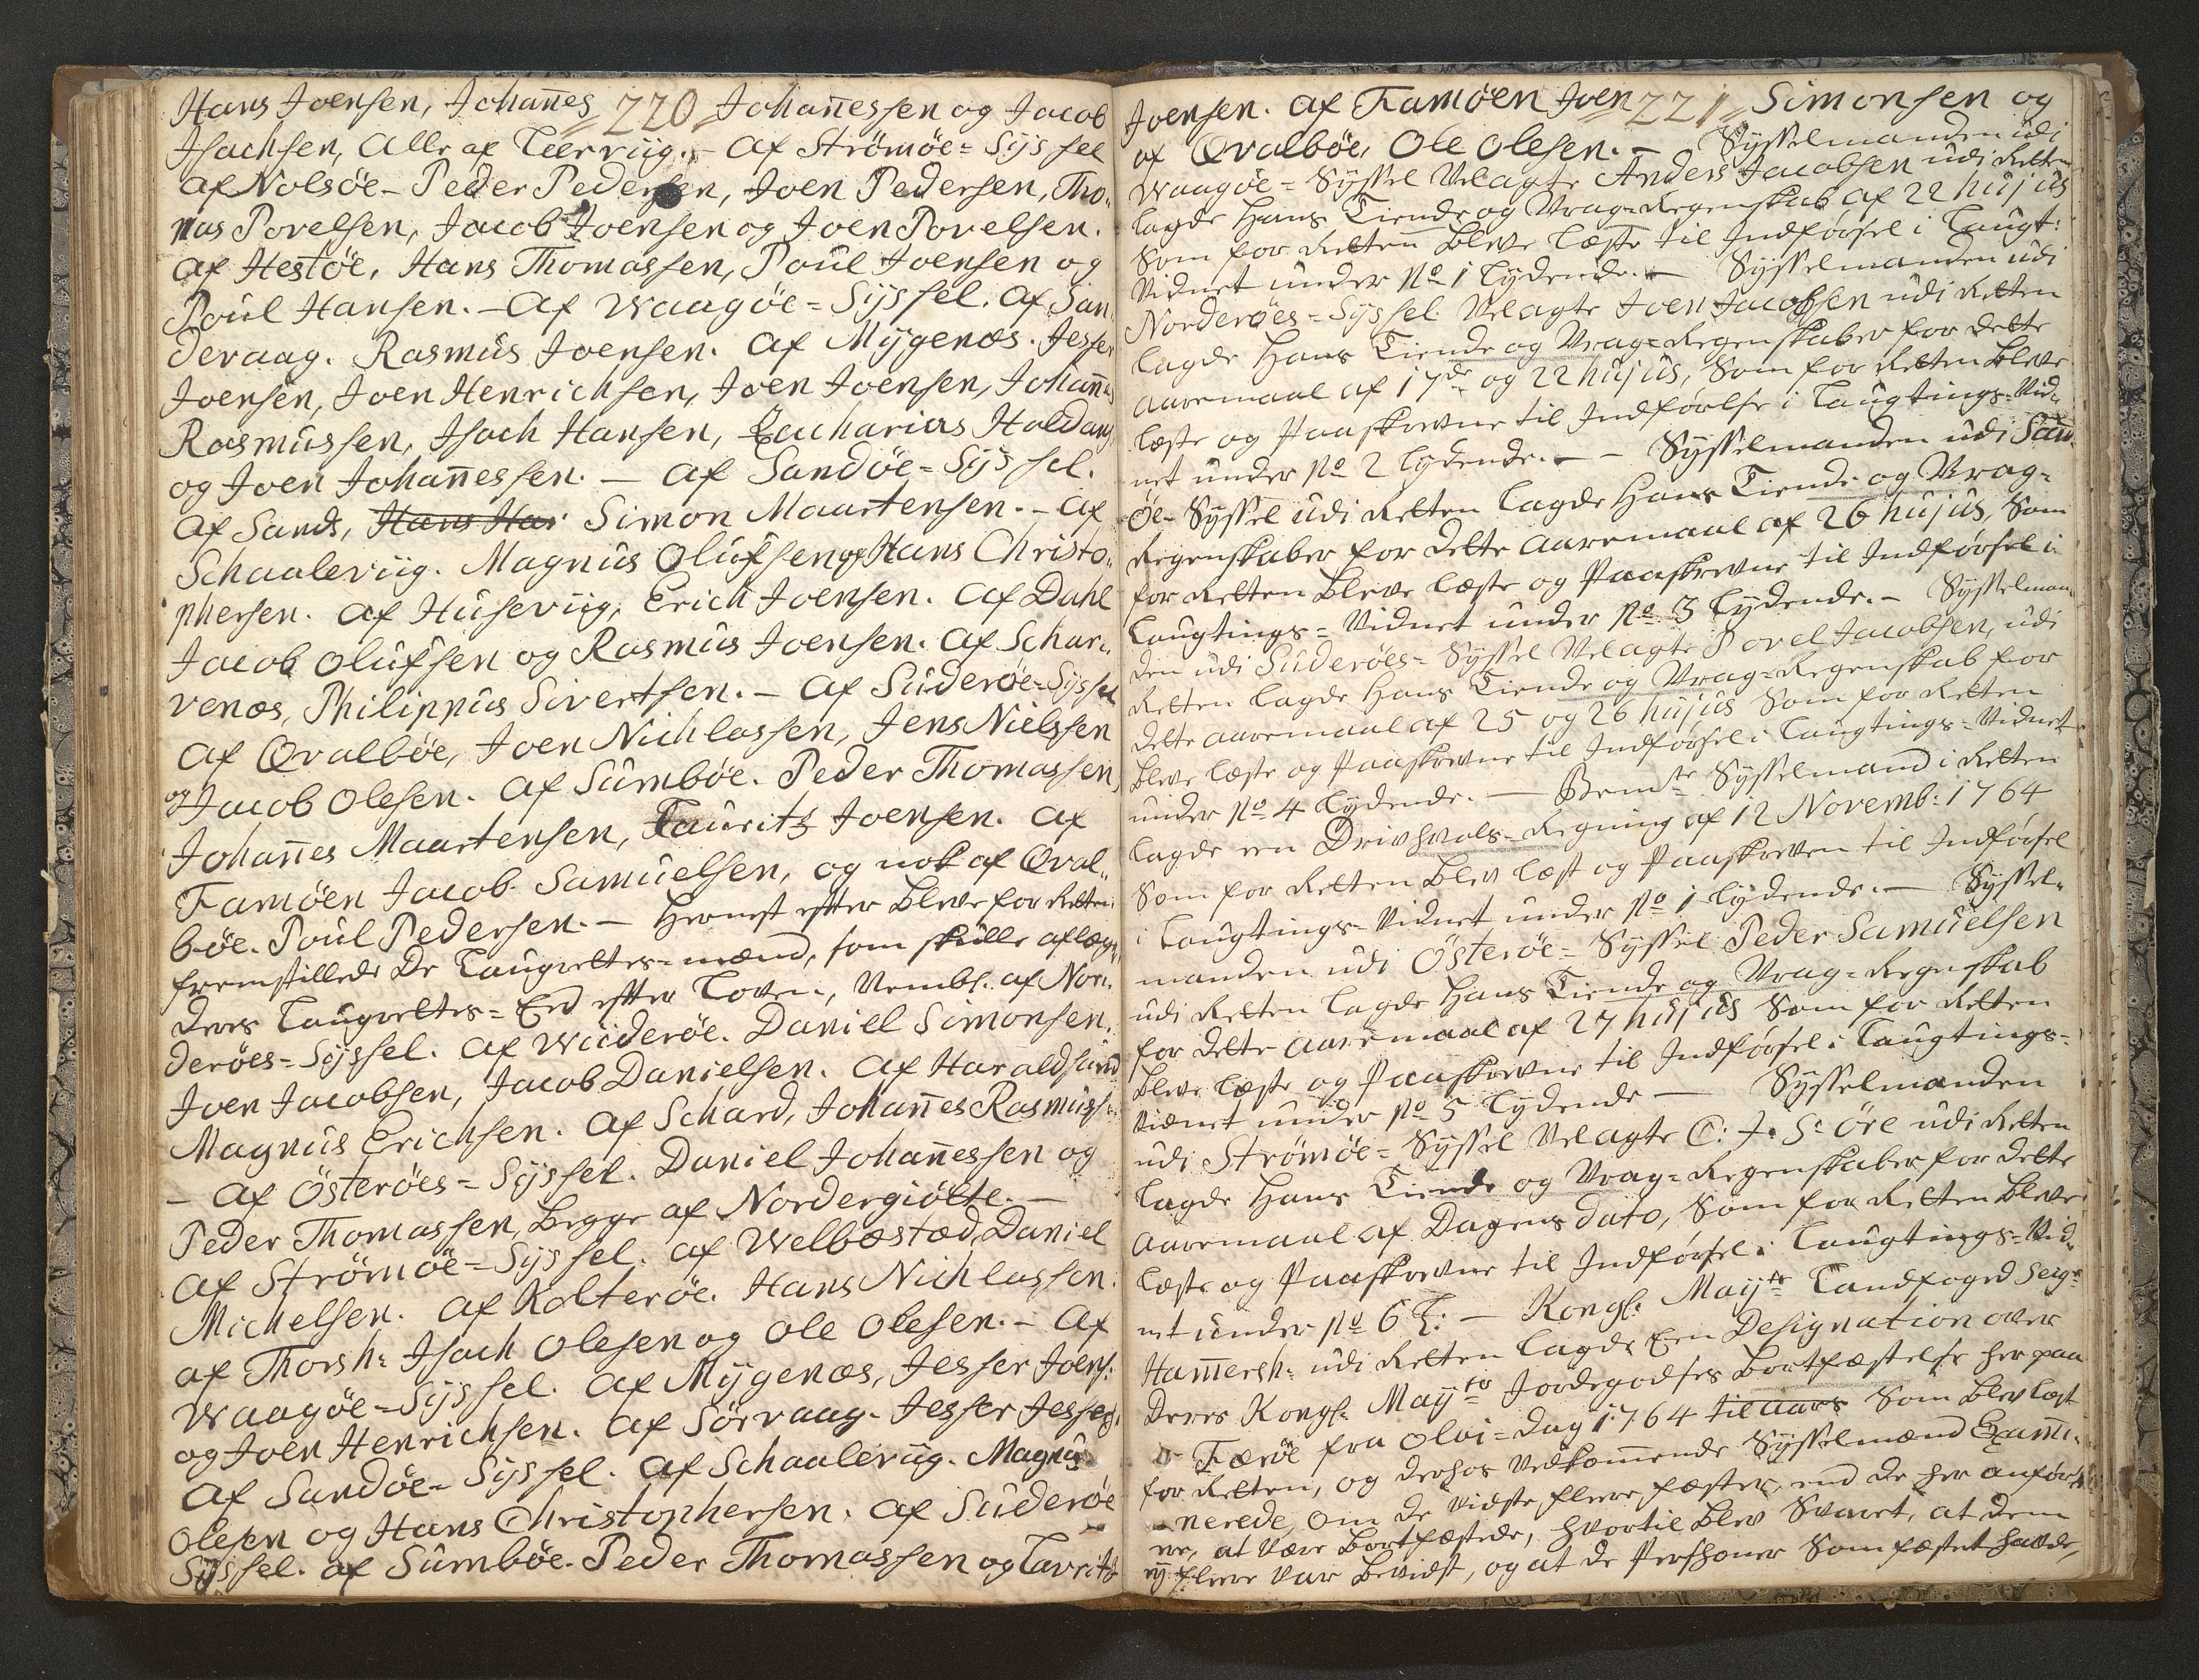 220
Hans Joensen, Johan̄es Johan̄essen og Jacob
Isachsen, Alle af Leerviig. – Af Strömöe=Sÿssel
Af Nolsöe – Peder Pedersen, Joen Pedersen, Tho„
mas Povelsen, Jacob Joensen og Joen Povelsen.
Af Hestöe, Hans Thomassen, Poul Joensen og
Poul Hansen. – Af Waagöe=Sÿssel. Af San„
dervaag. Rasmus Joensen. Af Mÿgenæs. Jesser
Joensen, Joen Henrichsen, Joen Joensen, Johan̄es
Rasmussen, Isach Hansen, Zacharias Holdang
og Joen Johan̄essen. – Af Sandöe=Sÿssel.
Af Sands, Hans Har Simon Maartensen. – Af
Schaaleviig. Magnus Olufsen og Hans Christo„
phersen. Af Huseviig, Erich Joensen. Af Dahl
Jacob Olufsen og Rasmus Joensen. Af Schar„
venæs, Philippus Sivertsen. – Af Süderöe=Sÿssel
Af Qvalböe, Joen Nichlassen, Jens Nielssen
og Jacob Olesen. Af Sumböe. Peder Thomassen,
Johan̄es Maartensen, Lauritz Joensen. Af
Famöen Jacob Samuelsen, og nok af Qval„
böe. Poul Pedersen. – Hernest efter bleve for Retten
fremstillede De Laugrettes=mænd, som skulle aflægge
deres Laugrettes=Eed efter Loven, Nembl. af Nor„
deröes=Sÿssel. Af Wideröe. Daniel Simonsen,
Joen Jacobsen, Jacob Danielsen. Af Haraldsund
Magnus Erichsen. Af Schard, Johan̄es Rasmuss:
– Af Österöes=Sÿssel. Daniel Johan̄essen og
Peder Thomassen, begge af Nordergiötte. –
Af Strömöe=Sÿssel. Af Welbæstæd, Daniel
Michelsen. Af Kolteröe. Hans Nichlassen.
af Thorsh: Isach Olesen og Ole Olesen. – Af
Waagöe=Sÿssel. Af Mÿgenæs, Jesser Joens:
og Joen Henrichsen. Af Sörvaag. Jesser Jessers:
Af Sandöe=Sÿssel. Af Schaaleviig. Magnus
Olesen og Hans Christophersen. Af Süderöe
Sÿssel. af Sumböe. Peder Thomassen og Lauritz
221
Joensen. Af Famöen Joen Simonsen og
af Qvalböe, Ole Olesen. – Sÿsselmanden udi
Waagöe=Sÿssel Velagte Anders Jacobsen udi Retten
lagde hans Tiende og Vrag=Regenskab af 22 hujus
Som for Retten bleve læste til Indförsel i Laugt:
Vidnet under No 1 lÿdende. – Sÿsselmanden udi
Norderöes=Sÿssel Velagte Joen Jacobsen udi Retten
lagde hans Tiende og Vrag=Regenskaber for dette
Aaremaal af 17de og 22 hujus, Som for Retten bleve
læste og Paaskrevne til Indförelse i Laugtings=Vid„
net under No 2 lÿdende. – – Sÿsselmanden udi San„
öe=Sÿssel udi Retten lagde hans Tiende og Vrag=
Regenskaber for dette Aaremaal af 26 hujus, Som
for Retten bleve læste og Paaskrevne til Indförsel i
Laugtings=Vidnet under No 3 lÿdende. – Sÿsselman„
den udi Süderöes=Sÿssel Velagte Povel Jacobsen, udi
Retten lagde hans Tiende og Vrag=Regenskab for
dette Aaremaal af 25 og 26 hujus Som for Retten
bleve læste og Paaskrevne til Indförsel i Laugtings=Vidnet
under No 4 lÿdende. – Bemte Sÿsselmand i Retten
lagde een Drivhvals=Regning af 12 Novemb: 1764
Som for Retten blev læst og Paaskreven til Indförsel
i Laugtings=Vidnet under No 1 lÿdende. – Sÿssel„
manden udi Österöe=Sÿssel Peder Samuelsen
udi Retten lagde hans Tiende og Vrag=Regnskab
for dette Aaremaal af 27 hujus Som for Retten
bleve læste og Paaskrevne til Indförsel i Laugtings=
Vidnet under No 5 lÿdende – Sÿsselmanden
udi Strömöe=Sÿssel Velagte C: J: S: Öre udi Retten
lagde hans Tiende og Vrag=Regenskaber for dette
Aaremaal af Dagens dato, Som for Retten bleve
læste og Paaskrevne til Indförsel i Laugtings=Vid„
net under No 6 L: – Kongl: Mayts Landfoged Seigr
Ham̄ersh: udi Retten lagde Een Designation over
Deres Kongl: Mayts Jordegodses bortfæstelse her paa
Færöe fra Oloi=Dag 1764 til aars Som blev læst
for Retten, og derhos Vedkom̄ende Sÿsselmænd Exami„
nerede, om De vidste flere fæster, end de her anför„
er, at være bortfæstede, hvortil blev Svaret, at dem
eÿ flere var bevidst, og at de Persohner Som fæstet havde,